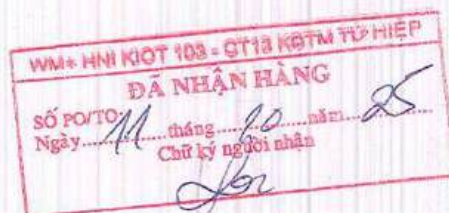 WM+ HNI KIOT 103 - CT13 KĐTM TỨ HIỆP
ĐÃ NHẬN HÀNG
SỐ PO/TO:
Ngày 11 tháng 10 năm 25
Chữ ký người nhận